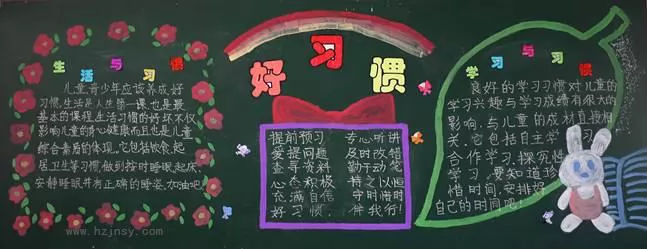 生活与习惯
儿童青少年应该养成好
习惯,生活是人生第一课也是最
基本的课程,生活习惯的好坏不仅
影响儿童的身心健康而且也是儿童
综合素质的体现,它包括饮食起
居卫生等习惯,做到按时睡眠起床
安静睡眠并有正确的睡姿,加油吧
好习惯
提前预习 专心听讲
爱提问题 及时改错
查寻资料 勤于动笔
心态积极 持之以恒
充满自信 守时惜时
好习惯, 伴我行!
学习与习惯
良好的学习习惯对儿童的
学习兴趣与学习成绩有很大的
影响,与儿童的成材直接相
关,它包括自主学习,
合作学习,探究性
学习,要知道珍
惜时间,安排好
自己的时间吧!
www.hzjnsy.com